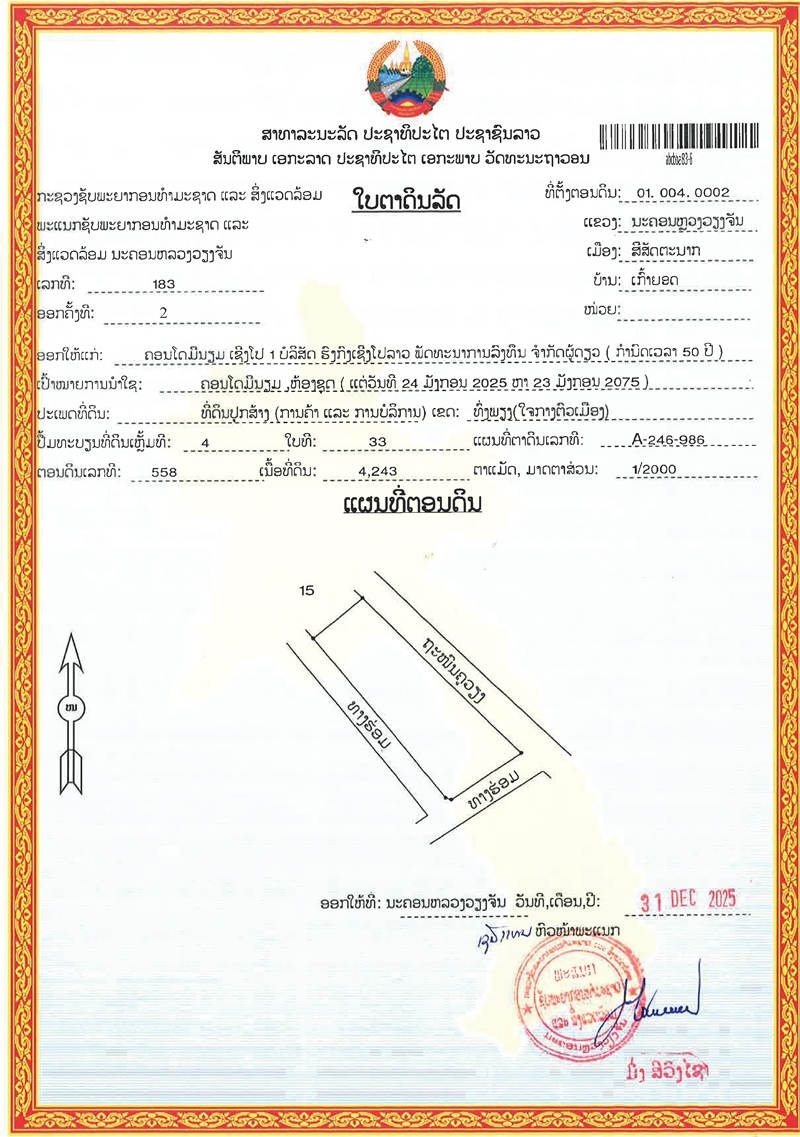 ສາທາລະນະລັດ ປະຊາທິປະໄຕ ປະຊາຊົນລາວ
ສັນຕິພາບ ເອກະລາດ ປະຊາທິປະໄຕ ເອກະພາບ ວັດທະນະຖາວອນ
ກະຊວງຊັບພະຍາກອນທຳມະຊາດ ແລະ ສິ່ງແວດລ້ອມ
ພະແນກຊັບພະຍາກອນທຳມະຊາດ ແລະ
ສິ່ງແວດລ້ອມ ນະຄອນຫລວງວຽງຈັນ
ເລກທີ: 183
ອອກຄັ້ງທີ: 2
ໃບຕາດິນລັດ
ທີ່ຕັ້ງຕອນດິນ: 01. 004. 0002
ແຂວງ: ນະຄອນຫຼວງວຽງຈັນ
ເມືອງ: ສີສັດຕະນາກ
ບ້ານ: ເກົ້າຍອດ
ໜ່ວຍ:
ອອກໃຫ້ແກ່: ຄອນໂດມີນຽມ ເຊີງໂປ 1 ບໍລິສັດ ຮົງກົງເຊີງໂປລາວ ພັດທະນາການລົງທຶນ ຈຳກັດຜູ້ດຽວ ( ກຳນົດເວລາ 50 ປີ )
ເປົ້າໝາຍການນຳໃຊ: ຄອນໂດມີນຽມ ,ຫ້ອງຊຸດ ( ແຕ່ວັນທີ 24 ມັງກອນ 2025 ຫາ 23 ມັງກອນ 2075 )
ປະເພດທີ່ດິນ: ທີ່ດິນປຸກສ້າງ (ການຄ້າ ແລະ ການບໍລິການ) ເຂດ: ທົ່ງພຽງ(ໃຈກາງຕົວເມືອງ)
ປຶ້ມທະບຽນທີ່ດິນເຫຼັ້ມທີ: 4 ໃບທີ: 33 ແຜນທີ່ຕາດິນເລກທີ: A-246-986
ຕອນດິນເລກທີ: 558 ເນື້ອທີ່ດິນ: 4,243 ຕາແມັດ, ມາດຕາສ່ວນ: 1/2000
ແຜນທີ່ຕອນດິນ
15
ຖະໜົນຄູວຽງ
ທາງຮ່ອມ
ທາງຮ່ອມ
ໜ
ອອກໃຫ້ທີ່: ນະຄອນຫລວງວຽງຈັນ ວັນທີ,ເດືອນ,ປີ: 31 DEC 2025
ຫົວໜ້າພະແນກ
ພະແນກ
ຊັບພະຍາກອນທຳມະຊາດ
ແລະ ສິ່ງແວດລ້ອມ
ນະຄອນຫຼວງວຽງຈັນ